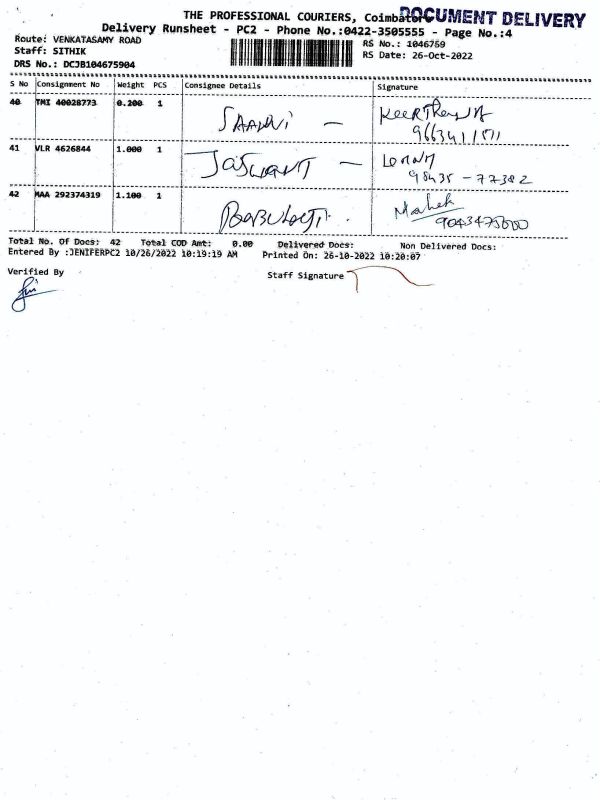 THE PROFESSIONAL COURIERS, Coimbator
DOCUMENT DELIVERY
Delivery Runsheet - PC2 - Phone No.:0422-3505555 - Page No.:4
Route: VENKATASAMY ROAD
RS No.: 1046759
Staff: SITHIK
RS Date: 26-Oct-2022
DRS No.: DCJB104675904
S No Consignment No Weight PCS Consignee Details Signature
40 TMI 40028773 0.200 1
41 VLR 4626844 1.000 1 JASWANT -
98435-77382
42 MAA 292374319 1.100 1 Mahek
Total No. Of Docs: 42 Total COD Amt: 0.00 Delivered Docs: Non Delivered Docs:
Entered By :JENIFERPC2 10/26/2022 10:19:19 AM Printed On: 26-10-2022 10:20:07
Verified By
Staff Signature